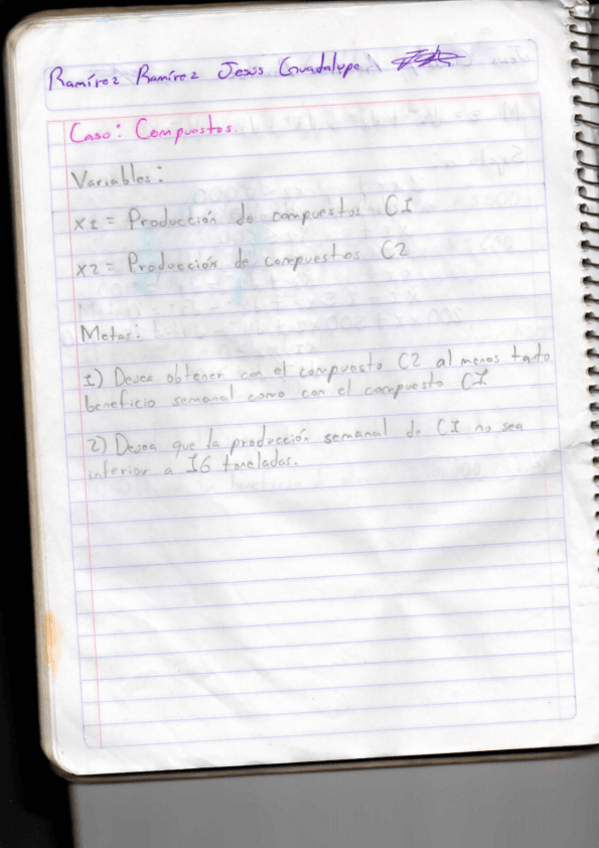 Ramírez Ramírez Jesus Guadalupe
Caso: Compuestos.
Variables:
x1 = Producción de compuestos C1
x2 = Producción de compuestos C2
Metas:
1) Desea obtener con el compuesto C2 al menos tanto
beneficio semanal como con el compuesto C1
2) Desea que la producción semanal de C1 no sea
inferior a 16 toneladas.